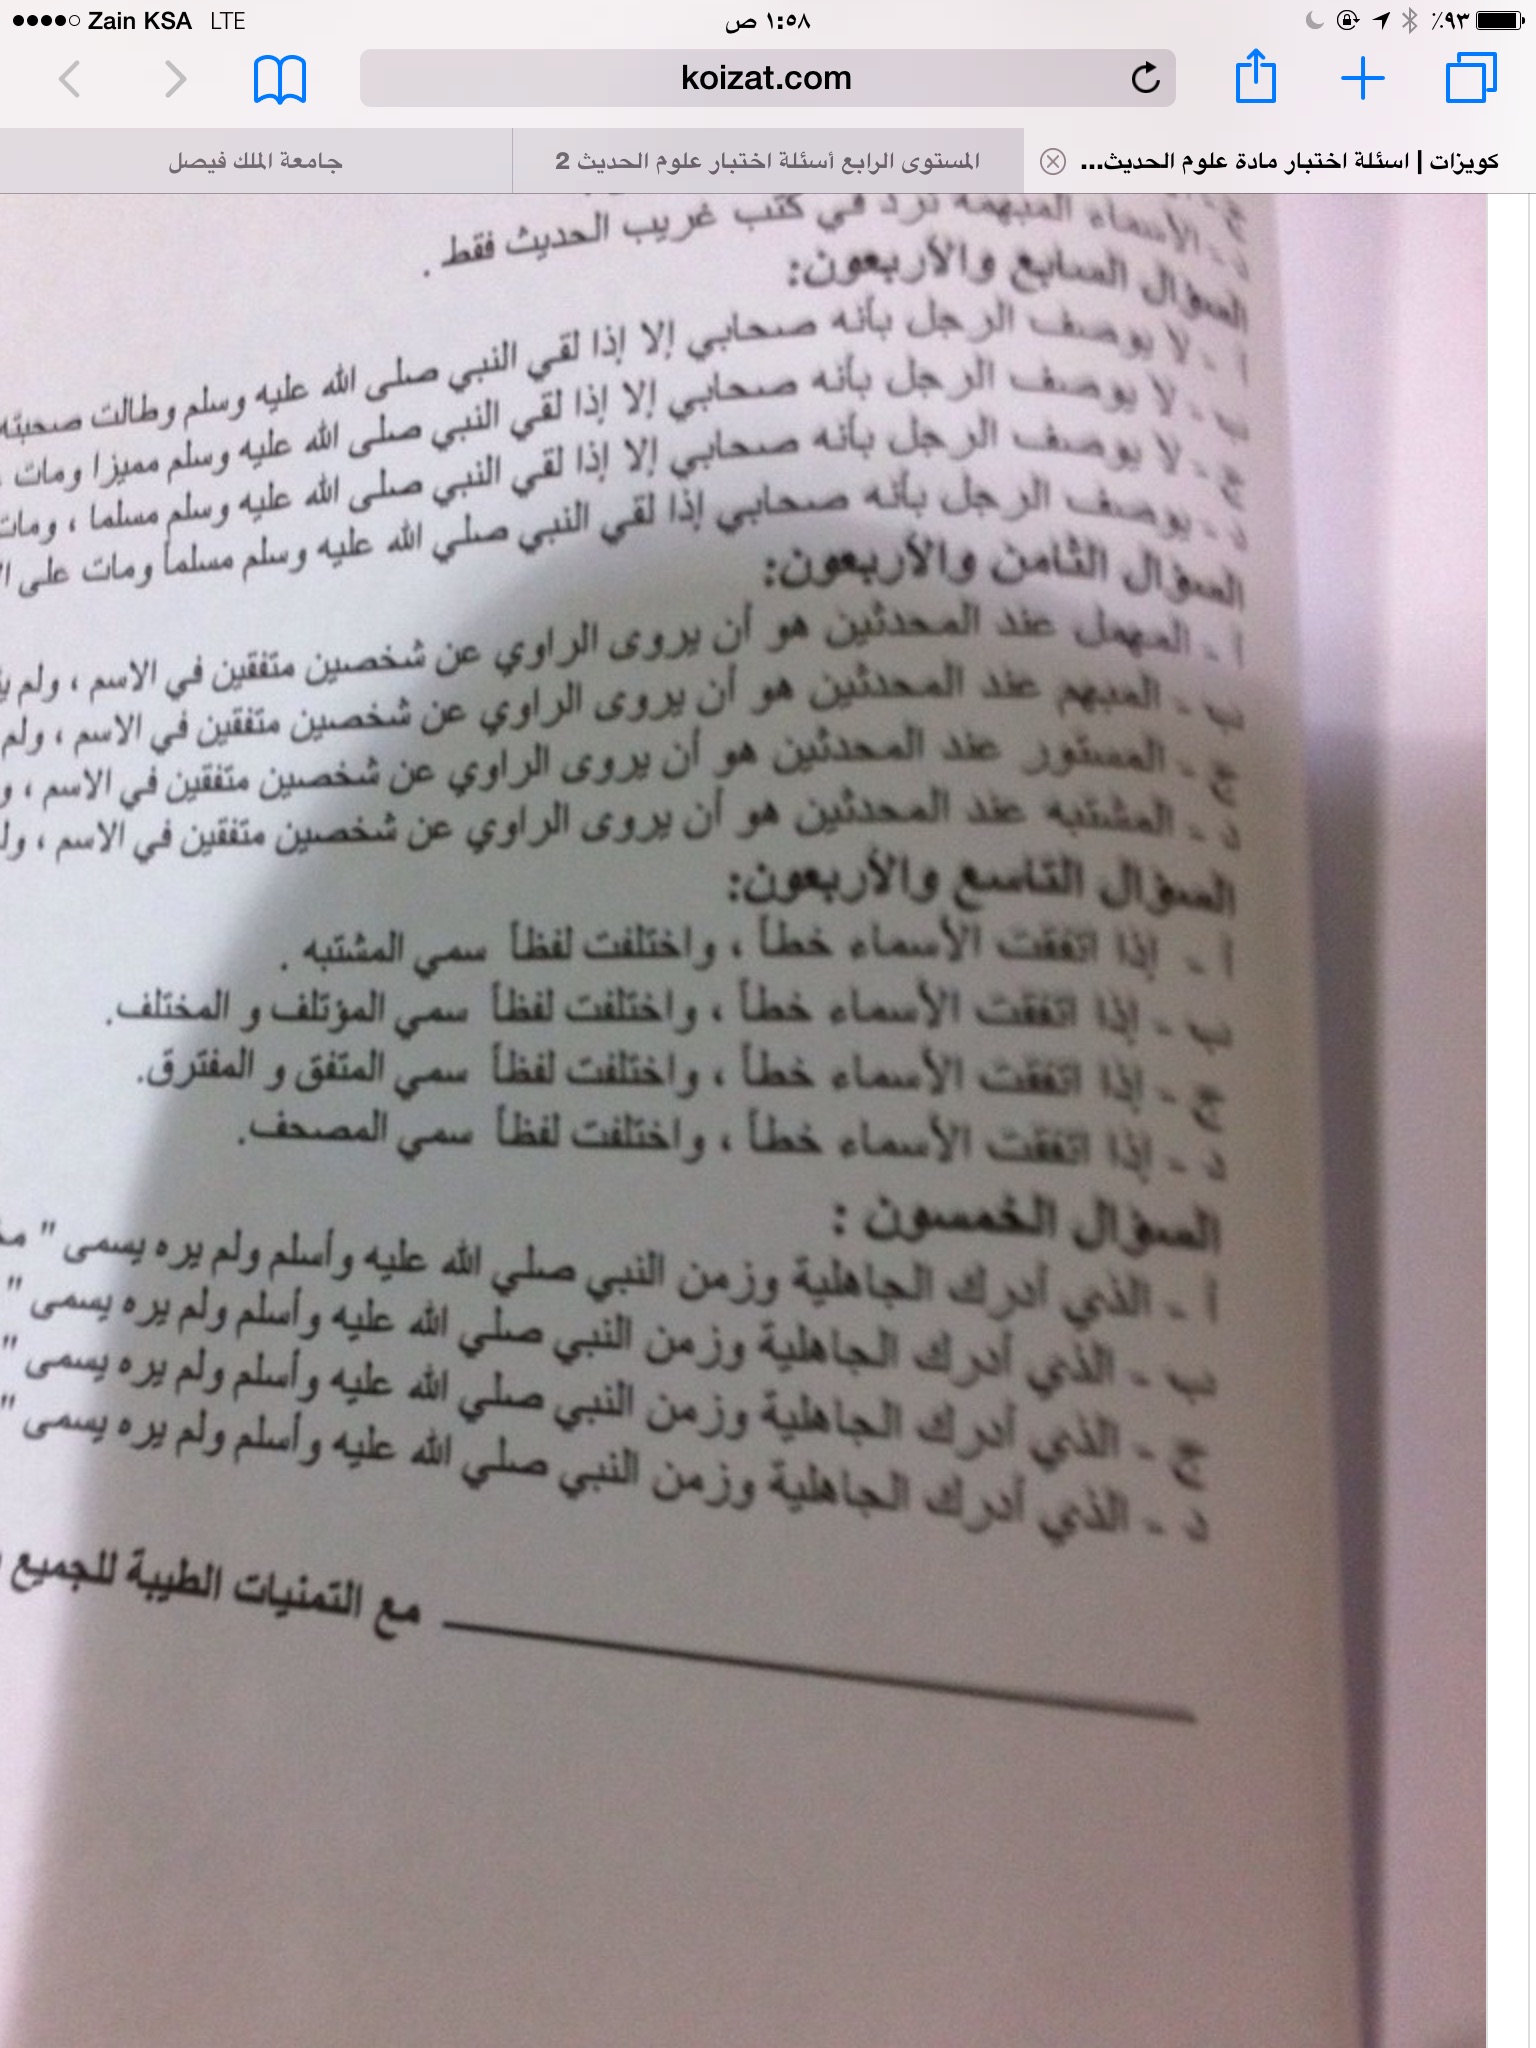 Zain KSA LTE ١:٥٨ ص ٪٩٣
koizat.com
جامعة الملك فيصل
المستوى الرابع أسئلة اختبار علوم الحديث 2
كويزات | اسئلة اختبار مادة علوم الحديث...
د - الأسماء المبهمة ترد في كتب غريب الحديث فقط .
السؤال السابع والأربعون:
أ - لا يوصف الرجل بأنه صحابي إلا إذا لقي النبي صلى الله عليه وسلم وطالت صحبته
ب - لا يوصف الرجل بأنه صحابي إلا إذا لقي النبي صلى الله عليه وسلم مميزا ومات
ج - لا يوصف الرجل بأنه صحابي إلا إذا لقي النبي صلى الله عليه وسلم مسلما ، ومات
د - يوصف الرجل بأنه صحابي إذا لقي النبي صلي الله عليه وسلم مسلما ومات على
السؤال الثامن والأربعون:
أ - المهمل عند المحدثين هو أن يروى الراوي عن شخصين متفقين في الاسم ، ولم
ب - المبهم عند المحدثين هو أن يروى الراوي عن شخصين متفقين في الاسم ، ولم
ج - المستور عند المحدثين هو أن يروى الراوي عن شخصين متفقين في الاسم ، و
د - المشتبه عند المحدثين هو أن يروى الراوي عن شخصين متفقين في الاسم ،
السؤال التاسع والأربعون:
أ - إذا اتفقت الأسماء خطأ ، واختلفت لفظأ سمي المشتبه .
ب - إذا اتفقت الأسماء خطأ ، واختلفت لفظأ سمي المؤتلف و المختلف.
ج - إذا اتفقت الأسماء خطأ ، واختلفت لفظأ سمي المتفق و المفترق.
د - إذا اتفقت الأسماء خطأ ، واختلفت لفظأ سمي المصحف.
السؤال الخمسون :
أ - الذي أدرك الجاهلية وزمن النبي صلي الله عليه وأسلم ولم يره يسمى "
ب - الذي أدرك الجاهلية وزمن النبي صلي الله عليه وأسلم ولم يره يسمى "
ج - الذي أدرك الجاهلية وزمن النبي صلي الله عليه وأسلم ولم يره يسمى "
د - الذي أدرك الجاهلية وزمن النبي صلي الله عليه وأسلم ولم يره يسمى "
مع التمنيات الطيبة للجميع